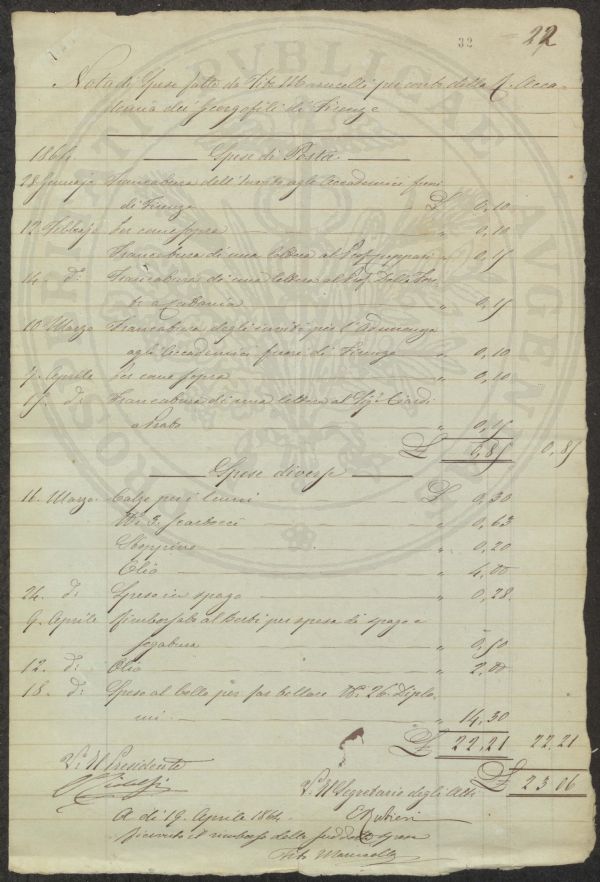 32 22
Nota di Spese fatte da Tito Marucelli per conto della R. Acca-
demia dei Georgofili di Firenze
1864. Spese di Posta
28 Gennajo Francatura dell'Invito agli Accademici fuori
di Firenze £ 0,10
12. Febbrajo Per come sopra " 0,10
Francatura di una lettera al Prof. " 0,15
14. d: Francatura di una lettera al Prof. Della
" 0,15
10. Marzo Francatura degli inviti per l'Adunanza
agli Accademici fuori di Firenze " 0,10
7. Aprile Per come sopra " 0,10
17. d: Francatura di una lettera al Sig: Ciardi
a Prato " 0,15
£ 0,85 0,85
Spese diverse
16. Marzo. Calze per i lumi £ 0,30
N: 3. " 0,63
Stoppino " 0,20
Olio " 4,00
24. d: Speso in spago " 0,28
9. Aprile Rimborsato al per spesa di spago e
segatura " 0,50
12. d: Olio " 2,00
18. d: Speso al bollo per far bollare N. 26. Diplo-
mi " 14,30
£ 22,21 22,21
£ 23 06
V: Il Presidente
Ridolfi
V. Il Segretario degli Atti
E Rubieri
A dì 19. Aprile 1864.
Ricevuto il rimborso delle suddette spese
Tito Marucelli
PVBLICAE